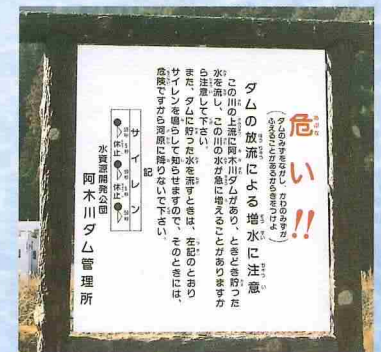 危い!!
(ダムのみずをながし、かわのみずが
ふえることがあるからきをつけよ)
ダムの放流による増水に注意
この川の上流に阿木川ダムがあり、ときどき貯った
水を流し、この川の水が急に増えることがありますか
ら注意して下さい。
また、ダムに貯った水を流すときは、左記のとおり
サイレンを鳴らして知らせますので、そのときには、
危険ですから河原に降りないで下さい。
記
サイレン
休止
休止
水資源開発公団
阿木川ダム管理所